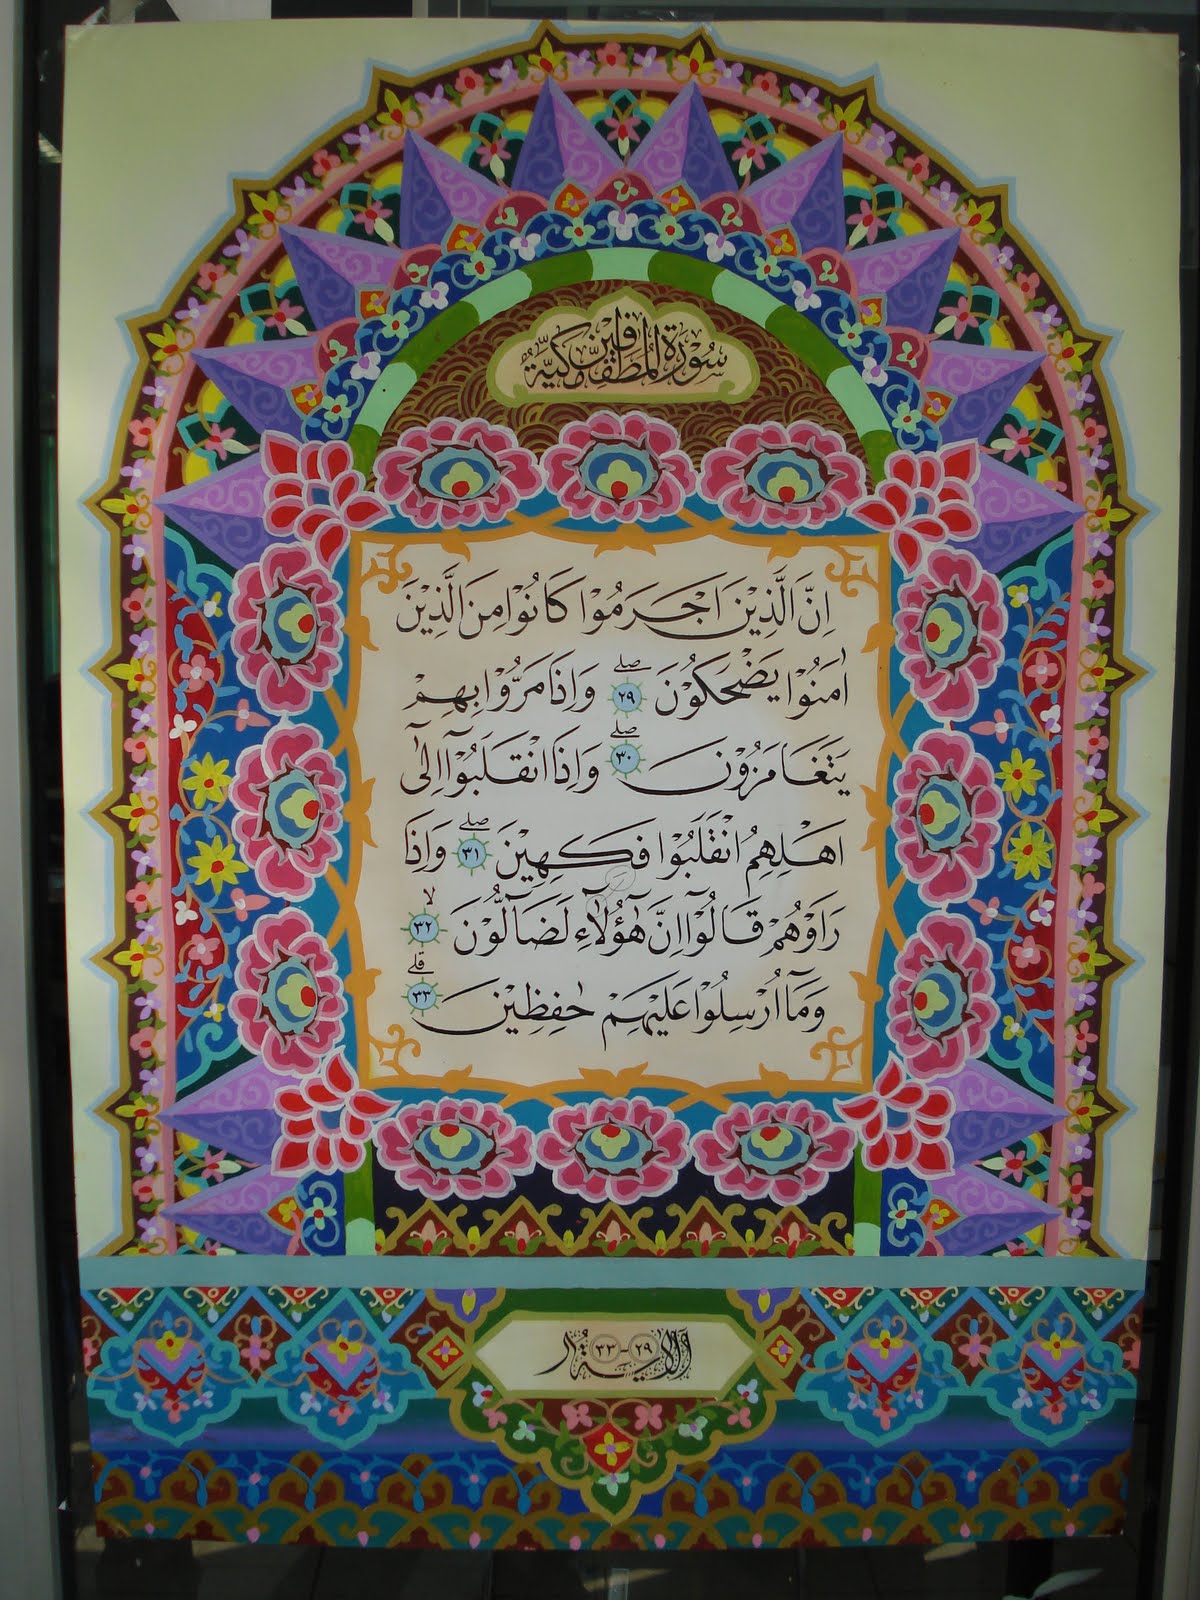 سُوْرَةُ الْمُطَفِّفِيْنَ مَكِّيَّةٌ
اِنَّ الَّذِيْنَ اَجْرَمُوْا كَانُوْا مِنَ الَّذِيْنَ
اٰمَنُوْا يَضْحَكُوْنَ ۖ ٢٩ وَاِذَا مَرُّوْا بِهِمْ
يَتَغَامَزُوْنَ ۖ ٣٠ وَاِذَا انْقَلَبُوْٓا اِلٰٓى
اَهْلِهِمُ انْقَلَبُوْا فَكِهِيْنَ ۖ ٣١ وَاِذَا
رَاَوْهُمْ قَالُوْٓا اِنَّ هٰٓؤُلَاۤءِ لَضَاۤلُّوْنَ ۙ ٣٢
وَمَآ اُرْسِلُوْا عَلَيْهِمْ حٰفِظِيْنَ ۗ ٣٣
اَلْاٰيَةُ ٢٩-٣٣